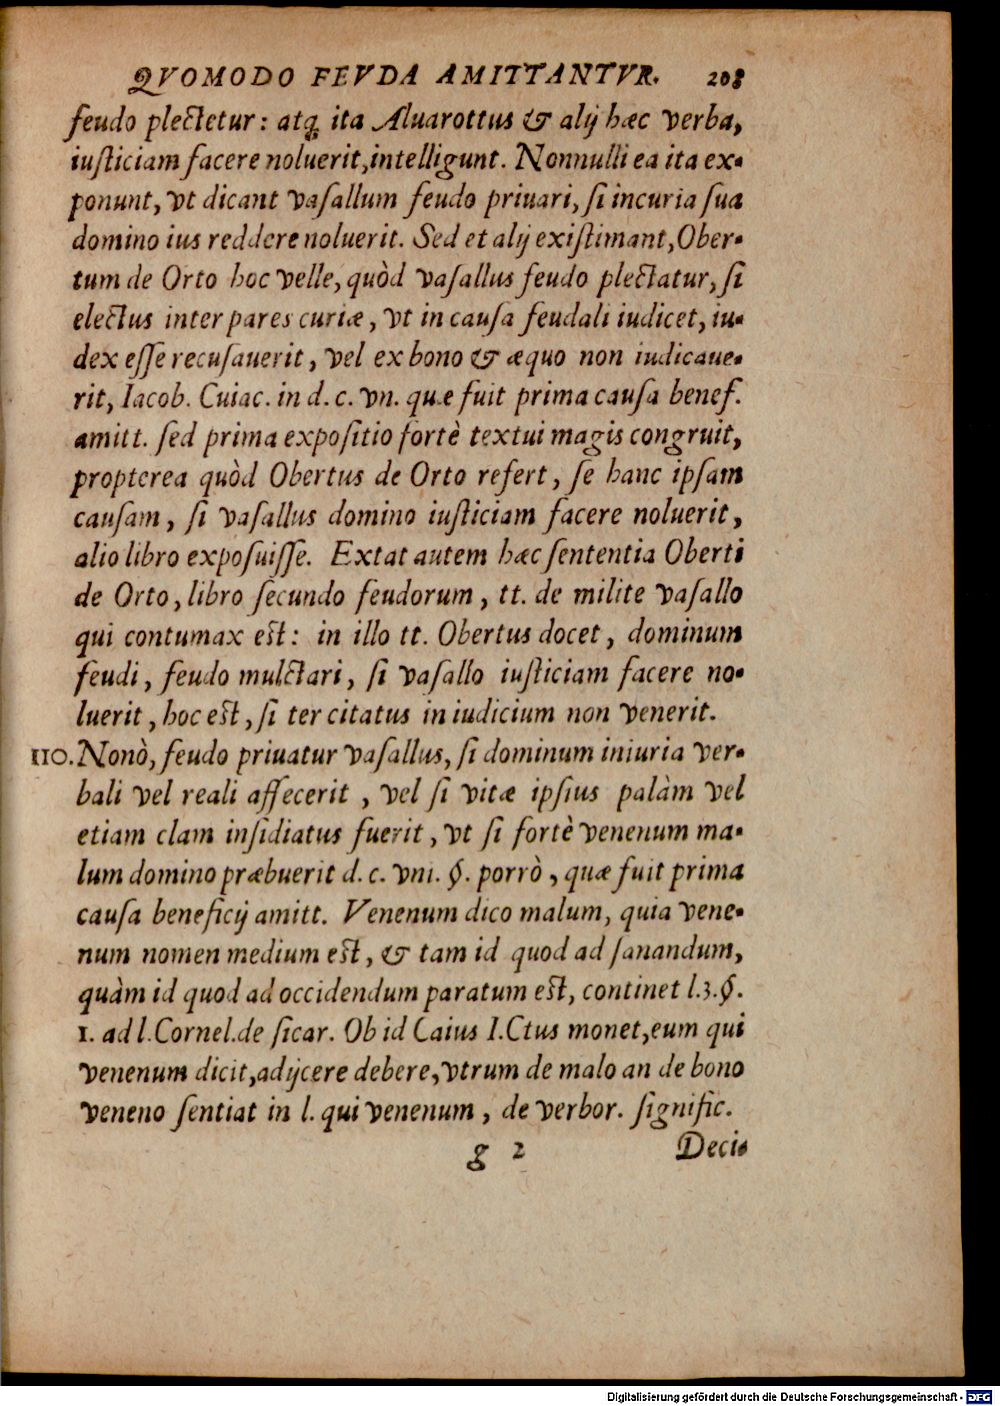 QVOMODO FEVDA AMITTANTVR. 208
feudo plectetur: atq; ita Aluarottus & alij hæc verba,
iusticiam facere noluerit, intelligunt. Nonnulli ea ita ex-
ponunt, vt dicant vasallum feudo priuari, si incuria sua
domino ius reddere noluerit. Sed et alij existimant, Ober-
tum de Orto hoc velle, quòd vasallus feudo plectatur, si
electus inter pares curiæ, vt in causa feudali iudicet, iu-
dex esse recusauerit, vel ex bono & æquo non iudicaue-
rit, Iacob. Cuiac. in d. c. vn. quæ fuit prima causa benef.
amitt. sed prima expositio fortè textui magis congruit,
propterea quòd Obertus de Orto refert, se hanc ipsam
causam, si vasallus domino iusticiam facere noluerit,
alio libro exposuisse. Extat autem hæc sententia Oberti
de Orto, libro secundo feudorum, tt. de milite vasallo
qui contumax est: in illo tt. Obertus docet, dominum
feudi, feudo mulctari, si vasallo iusticiam facere no-
luerit, hoc est, si ter citatus in iudicium non venerit.
110. Nonò, feudo priuatur vasallus, si dominum iniuria ver-
bali vel reali affecerit, vel si vitæ ipsius palàm vel
etiam clam insidiatus fuerit, vt si fortè venenum ma-
lum domino præbuerit d. c. vni. §. porrò, quæ fuit prima
causa beneficij amitt. Venenum dico malum, quia vene-
num nomen medium est, & tam id quod ad sanandum,
quàm id quod ad occidendum paratum est, continet l.3.§.
1. ad l. Cornel. de sicar. Ob id Caius I. Ctus monet, eum qui
venenum dicit, adijcere debere, vtrum de malo an de bono
veneno sentiat in l. qui venenum, de verbor. signific.
g 2 Deci-
Digitalisierung gefördert durch die Deutsche Forschungsgemeinschaft - DFG